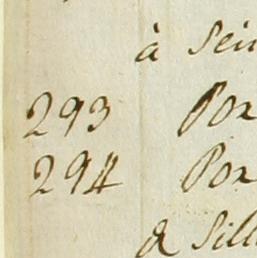 à Sei
293 Por
294 Por
à Sill